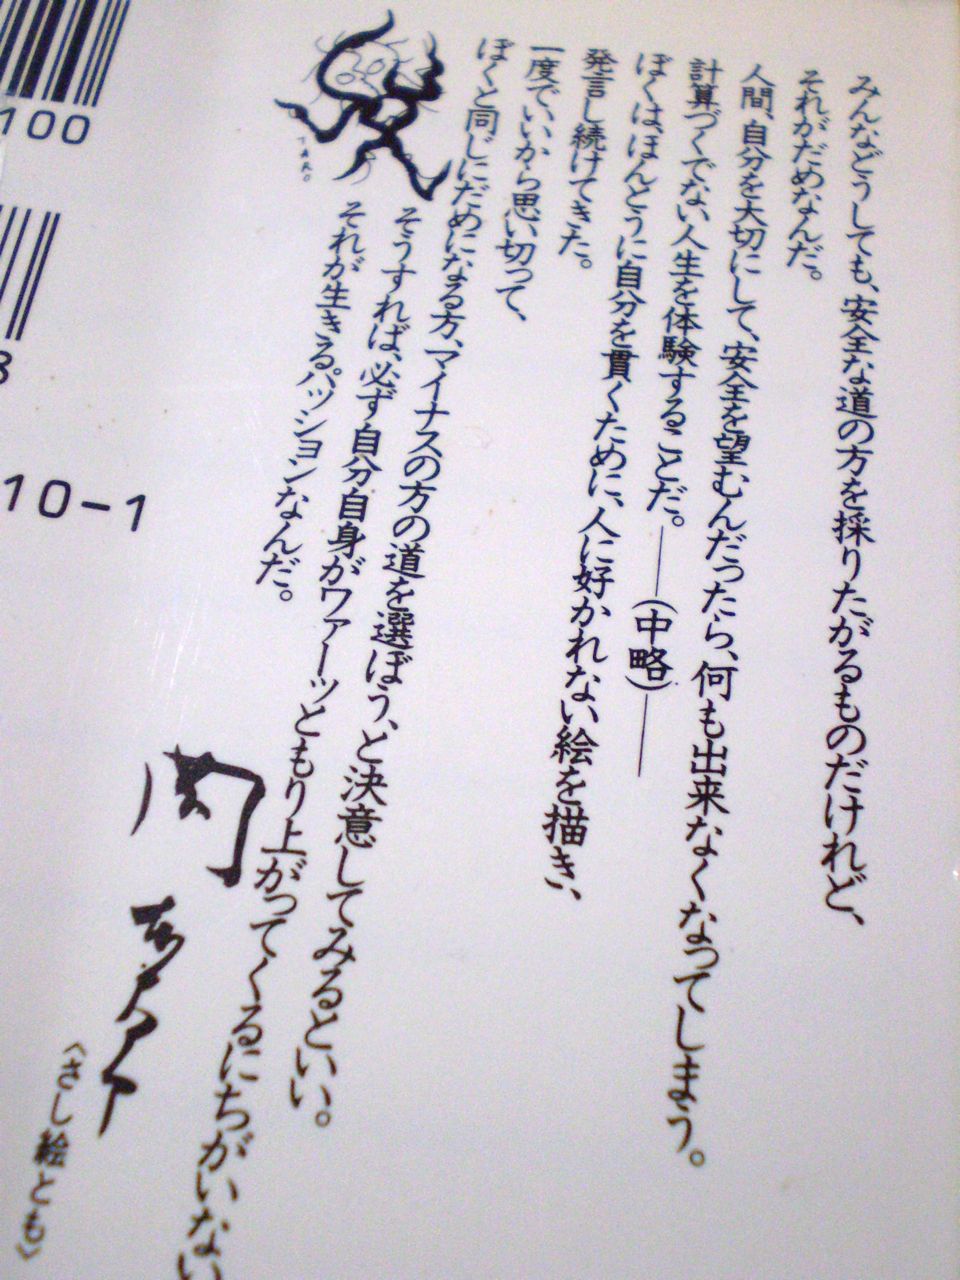 みんなどうしても、安全な道の方を採りたがるものだけれど、
それがだめなんだ。
人間、自分を大切にして、安全を望むんだったら、何も出来なくなってしまう。
計算づくでない人生を体験することだ。――(中略)――
ぼくは、ほんとうに自分を貫くために、人に好かれない絵を描き、
発言し続けてきた。
一度でいいから思い切って、
ぼくと同じにだめになる方、マイナスの方の道を選ぼう、と決意してみるといい。
そうすれば、必ず自分自身がワァーッともり上がってくるにちがいない
それが生きるパッションなんだ。
TARO
〈さし絵とも〉
100
8
10-1